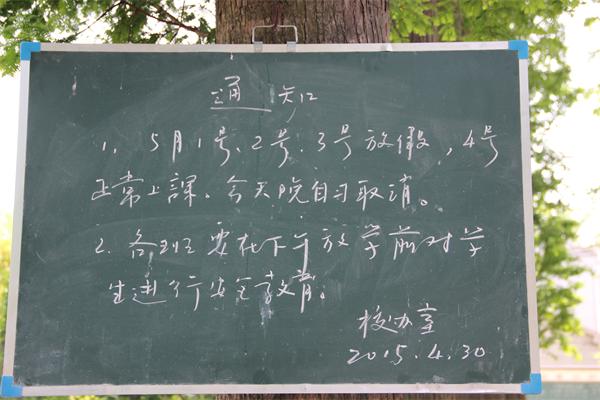 通知
1. 5月1号、2号、3号放假,4号
正常上課。今天晚自习取消。
2. 各班要在下午放学前对学
生进行安全教育。
校办室
2015.4.30